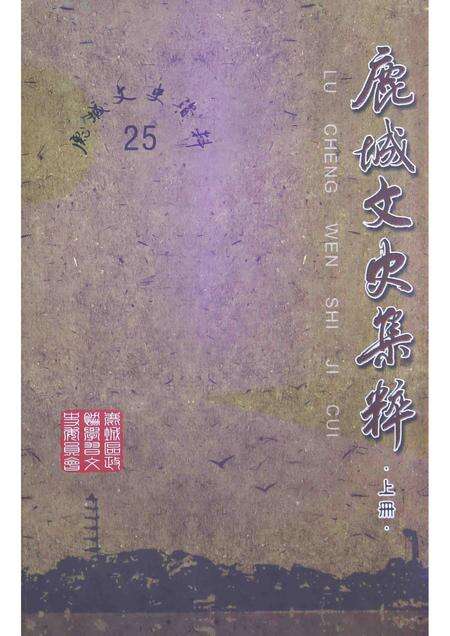 鹿城文史集粹
LU CHENG WEN SHI JI CUI
·上冊·
鹿城文史資料
25
鹿城區政
協學習文
史委員會